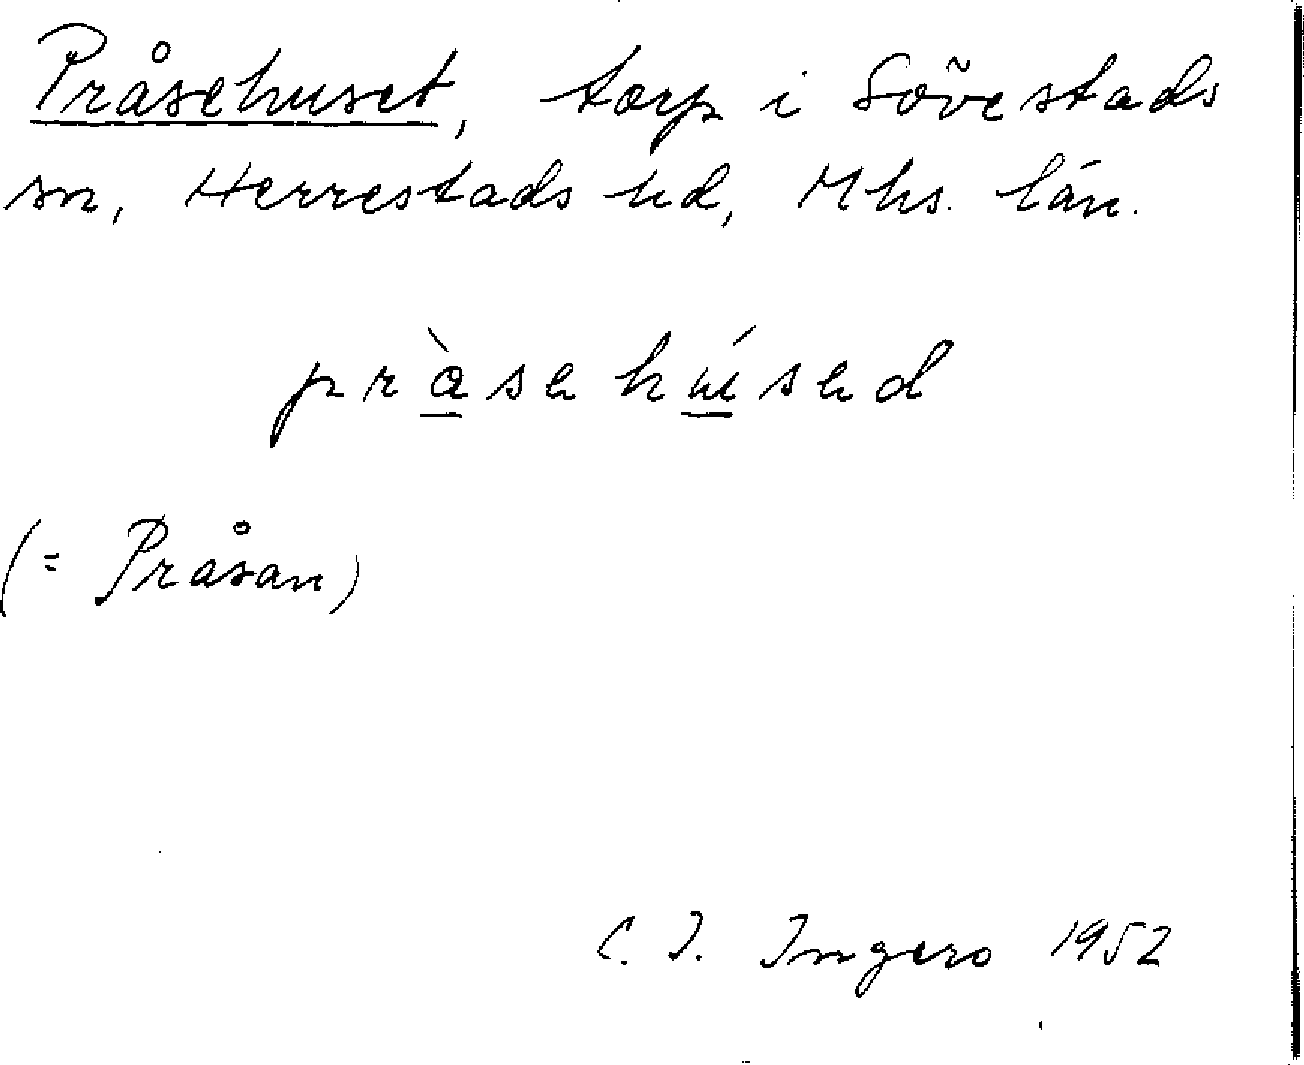 Pråsehuset, torp i Sövestads
sn, Herrestads hd, Mhs. län.
pràsehúsed
(= Pråsan)
C. I. Ingero 1952